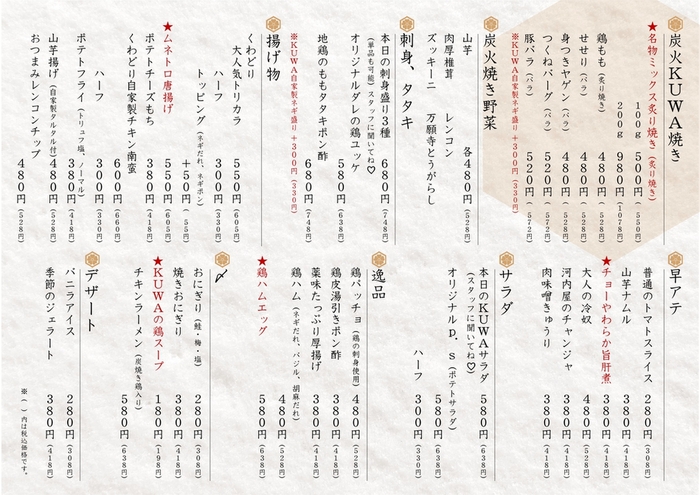 炭火KUWA焼き
★名物ミックス炙り焼き(炙り焼き)
100g 500円(550円)
200g 980円(1078円)
鶏もも(炙り焼き) 480円(528円)
せせり(バラ) 480円(528円)
身つきヤゲン(バラ) 480円(528円)
つくねバーグ(バラ) 520円(572円)
豚バラ(バラ) 520円(572円)
※KUWA自家製ネギ盛り+300円(330円)
炭火焼き野菜
山芋 各480円(528円)
肉厚椎茸 レンコン
ズッキーニ 万願寺とうがらし
刺身、タタキ
本日の刺身盛り3種 680円(748円)
(単品も可能)スタッフに聞いてね♡
オリジナルダレの鶏ユッケ 580円(638円)
地鶏のももタタキポン酢 680円(748円)
※KUWA自家製ネギ盛り+300円(330円)
揚げ物
くわどり
大人気トリカラ 550円(605円)
ハーフ 300円(330円)
トッピング(ネギだれ、ネギポン) +50円(55円)
★ムネトロ唐揚げ 550円(605円)
ポテトチーズもち 380円(418円)
くわどり自家製チキン南蛮 600円(660円)
ハーフ 300円(330円)
ポテトフライ(トリュフ塩、ノーマル) 380円(418円)
山芋揚げ(自家製タルタル付) 480円(528円)
おつまみレンコンチップ 480円(528円)
早アテ
普通のトマトスライス 280円(308円)
山芋ナムル 380円(418円)
★チョーやわらか旨肝煮 380円(418円)
大人の冷奴 480円(528円)
河内屋のチャンジャ 380円(418円)
肉味噌きゅうり 380円(418円)
サラダ
本日のKUWAサラダ 580円(638円)
(スタッフに聞いてね♡)
オリジナルP.S(ポテトサラダ) 580円(638円)
ハーフ 300円(330円)
逸品
鶏パッチョ(鶏の刺身使用) 480円(528円)
鶏皮湯引きポン酢 380円(418円)
薬味たっぷり厚揚げ 380円(418円)
鶏ハム(ネギだれ、バジル、胡麻だれ) 480円(528円)
★鶏ハムエッグ 580円(638円)
〆
おにぎり(鮭・梅・塩) 280円(308円)
焼きおにぎり 380円(418円)
★KUWAの鶏スープ 180円(198円)
チキンラーメン(炭焼き鶏入り) 580円(638円)
デザート
バニラアイス 280円(308円)
季節のジェラート 380円(418円)
※( )内は税込価格です。